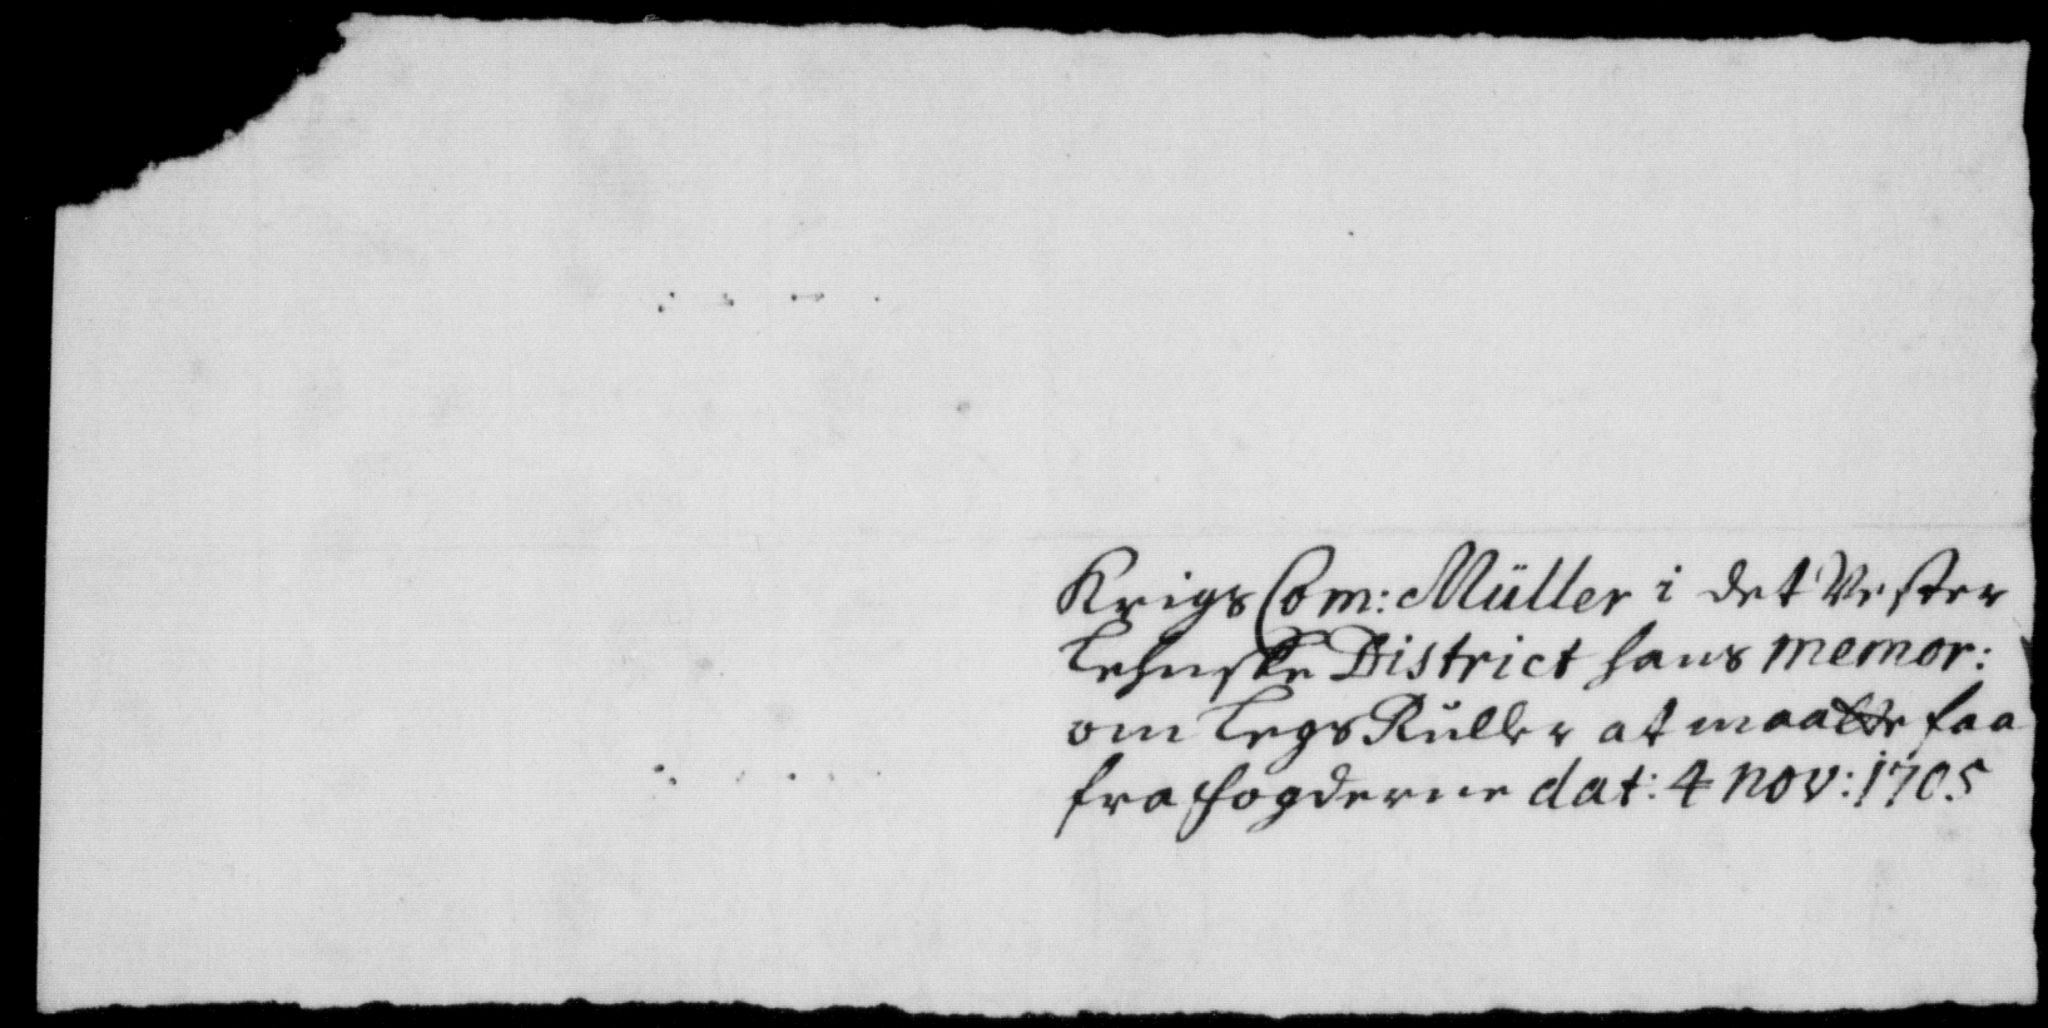 Krigs Com: Müller i det Vester
Lehnske District hans memor:
om Legs Ruller at maatte faa
fra fogderne dat: 4 nov: 1705